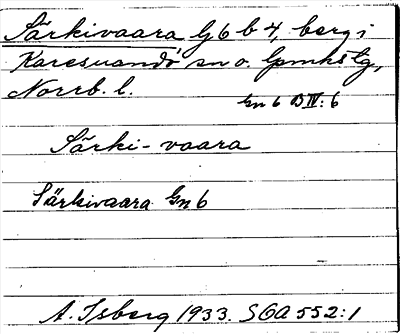 Särkivaara Gj 6 b 4, berg i
Karesuando sn o. lpmkstg,
Norrb. l.
Gn 6 B IV: 6
Särki-vaara
Särkivaara Gn 6
A. Isberg 1933. SGA 552:1